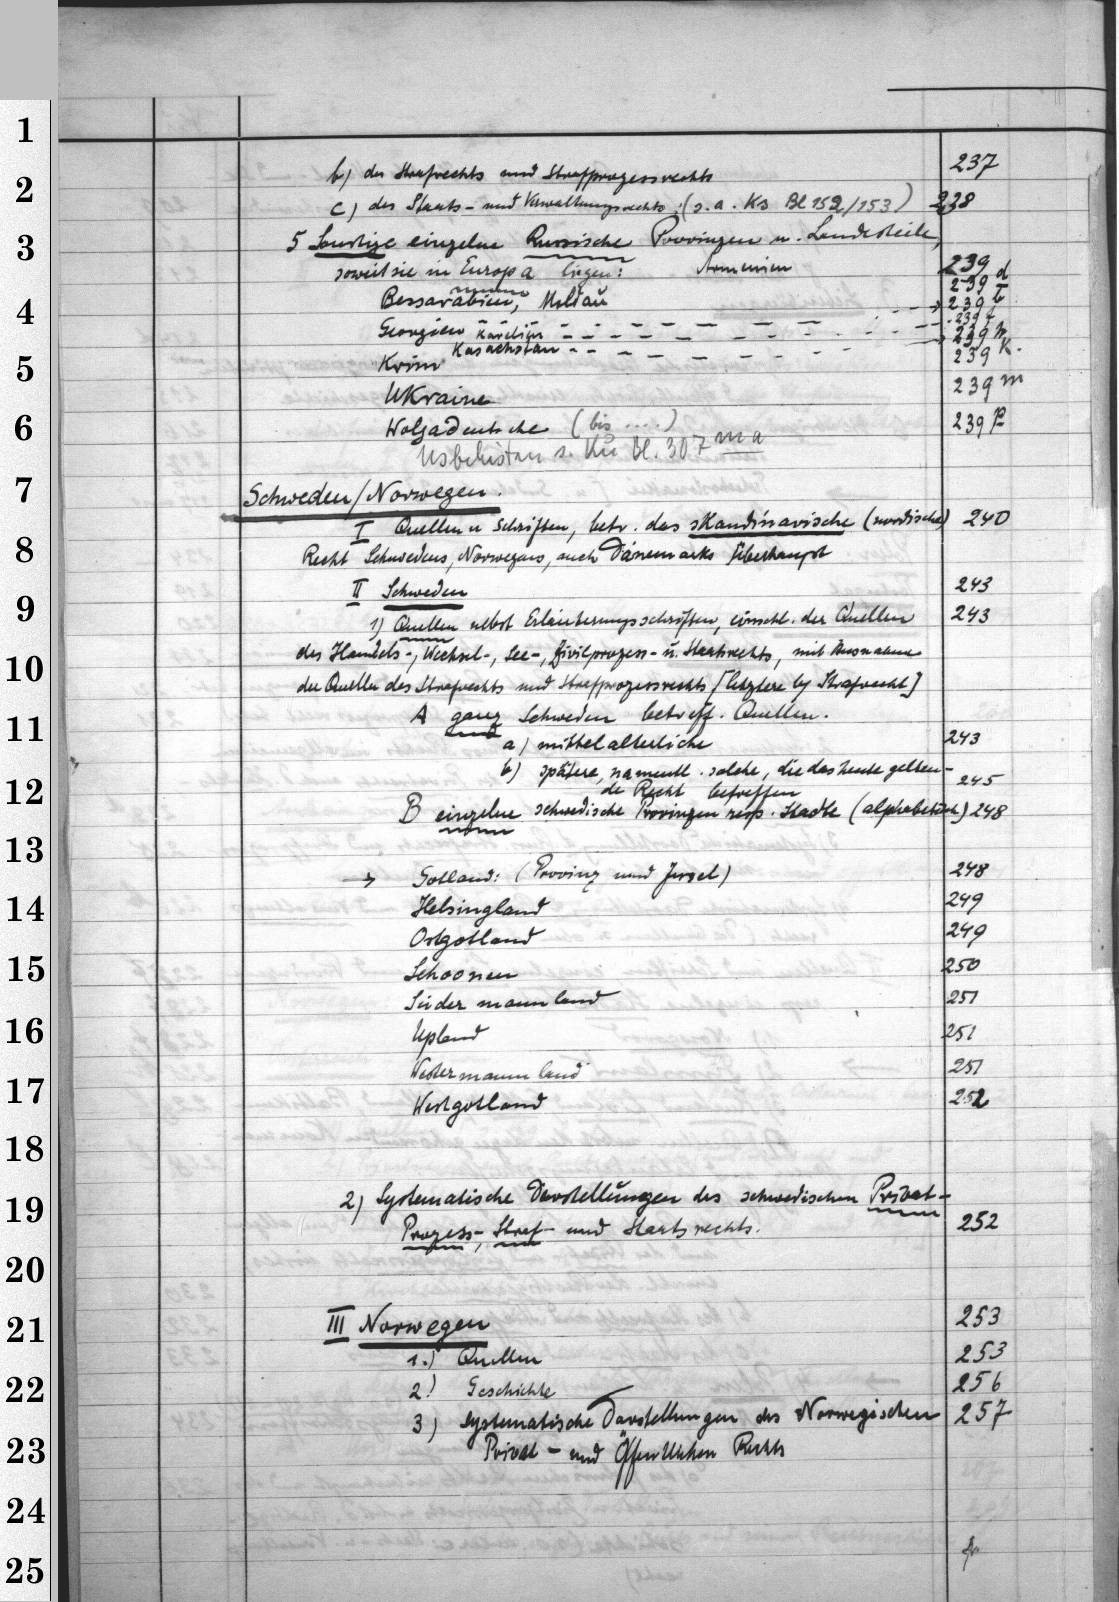 1
2
3
4
5
6
7
8
9
10
11
12
13
14
15
16
17
18
19
20
21
22
23
24
25
b) des Strafrechts und Strafprozessrechts 237
c) des Staats- und Verwaltungsrechts (s. a. Ks Bl 152/153) 238
5 Sonstige einzelne Russische Provinzen u. Landesteile,
soweit sie in Europa liegen: Armenien 239
Bessarabien, Moldau 239 d
Georgien 239
Karelien 239
Kasachstan 239
Krim 239 K.
Ukraine 239 m
Wolgadeutsche (bis ....) 239 p
Usbekistan s. Ku Bl. 307 ma
Schweden/Norwegen.
I Quellen u Schriften, betr. das skandinavische (nordische) 240
Recht Schwedens, Norwegens, auch Dänemarks überhaupt
II Schweden 243
1) Quellen nebst Erläuterungsschriften, einschl. der Quellen 243
des Handels-, Wechsel-, See-, Zivilprozess- u. Staatsrechts, mit Ausnahme
der Quellen des Strafrechts und Strafprozessrechts [letztere bei Strafrecht]
A ganz Schweden betreff. Quellen.
a) mittelalterliche 243
b) spätere, namentl. solche, die das heute gelten-
de Recht betreffen 245
B einzelne schwedische Provinzen resp. Städte (alphabetisch) 248
→ Gotland: (Provinz und Insel) 248
Helsingland 249
Ostgotland 249
Schoonen 250
Südermannland 251
Upland 251
Westermannland 251
Westgotland 252
2) Systematische Darstellungen des schwedischen Privat-
Prozess-, Straf- und Staatsrechts. 252
III Norwegen 253
1.) Quellen 253
2) Geschichte 256
3) Systematische Darstellungen des Norwegischen 257
Privat- und Öffentlichen Rechts